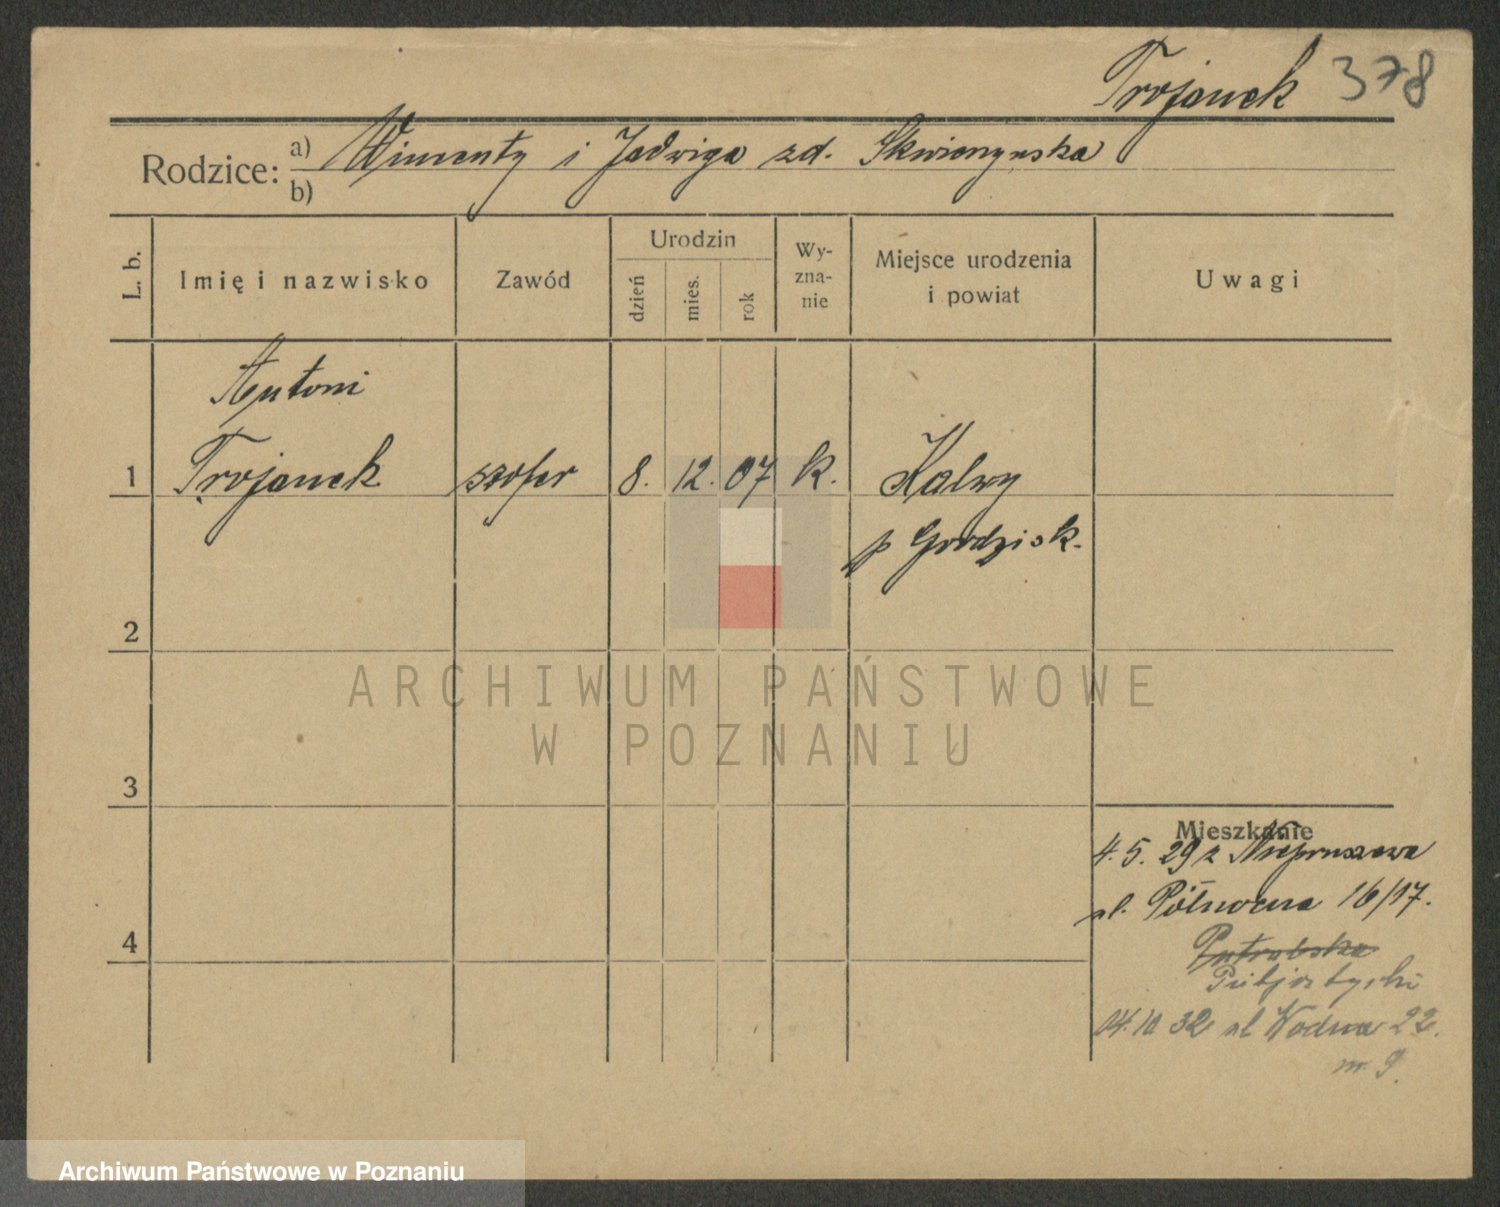 Trojanek 378
Rodzice: a) Wincenty i Jadwiga zd. Skwierzyńska
b)
L. b.
Imię i nazwisko
Zawód
Urodzin
dzień
mies.
rok
Wy-
zna-
nie
Miejsce urodzenia
i powiat
Uwagi
Antoni
1 Trojanek szofer 8. 12. 07 k. Kalwy
p Grodzisk.
2
3
4
Mieszkanie
4. 5. 29 z Niepruszewa
ul. Północna 16/17.
04.10 32 ul Wodna 22.
m 9.
ARCHIWUM PAŃSTWOWE
W POZNANIU
Archiwum Państwowe w Poznaniu